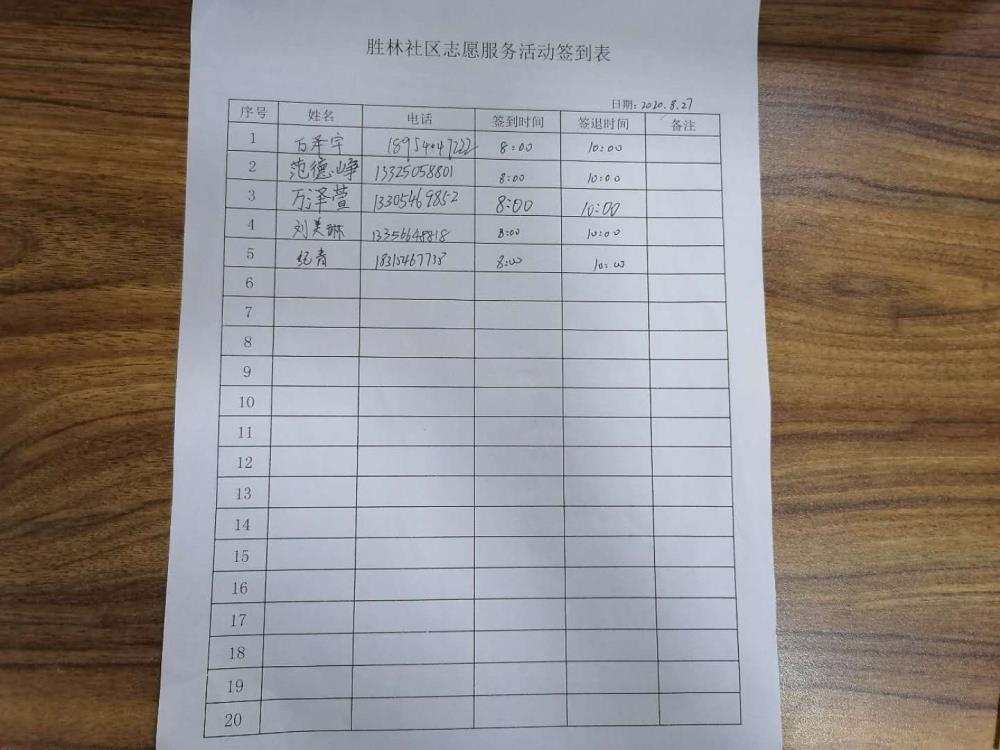 胜林社区志愿服务活动签到表
日期：2020.8.27
序号 姓名 电话 签到时间 签退时间 备注
1 万泽宇 18954047222 8:00 10:00
2 范德峥 13325058801 8:00 10:00
3 万泽萱 13305469852 8:00 10:00
4 刘美琳 13356648818 8:00 10:00
5 纪青 18315467738 8:00 10:00
6
7
8
9
10
11
12
13
14
15
16
17
18
19
20